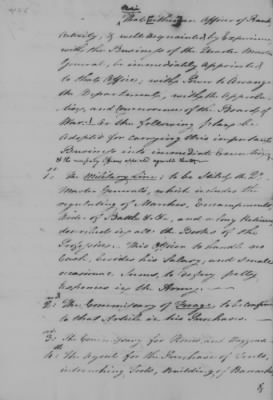 That either an Officer of Rank
Activity, & well acquainted by Experience
with the Business of the Quarter Master
General, be immediately appointed
to that Office, with Power to Arrange
the Department, with the Approba-
tion, and Concurrence of the Board of
War. Or the following plan be
Adopted for carrying this important
Business into immediate Execution,
& the necessary Officers appointed
1st. The Military Line; to be Stiled the Qr.
Master General, which includes the
regulating of Marches, Encampments
Order of Battle &c.
described in all the Books of the
Profession. This Officer to handle no
Cash, besides his Salary, and small
occasional Sums, to defray petty
Expences in the Army.
2d. The Commissary of Forage; to be confined
to that Article in his Purchases.
3d. The for Horses, and Waggons
4th. The Agent for the Purchase of Tents,
intrenching Tools, Building of Barracks